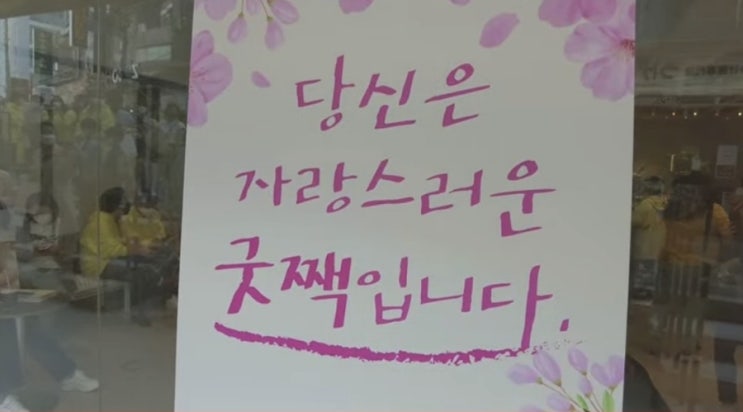 당신은
자랑스러운
굿짹입니다.